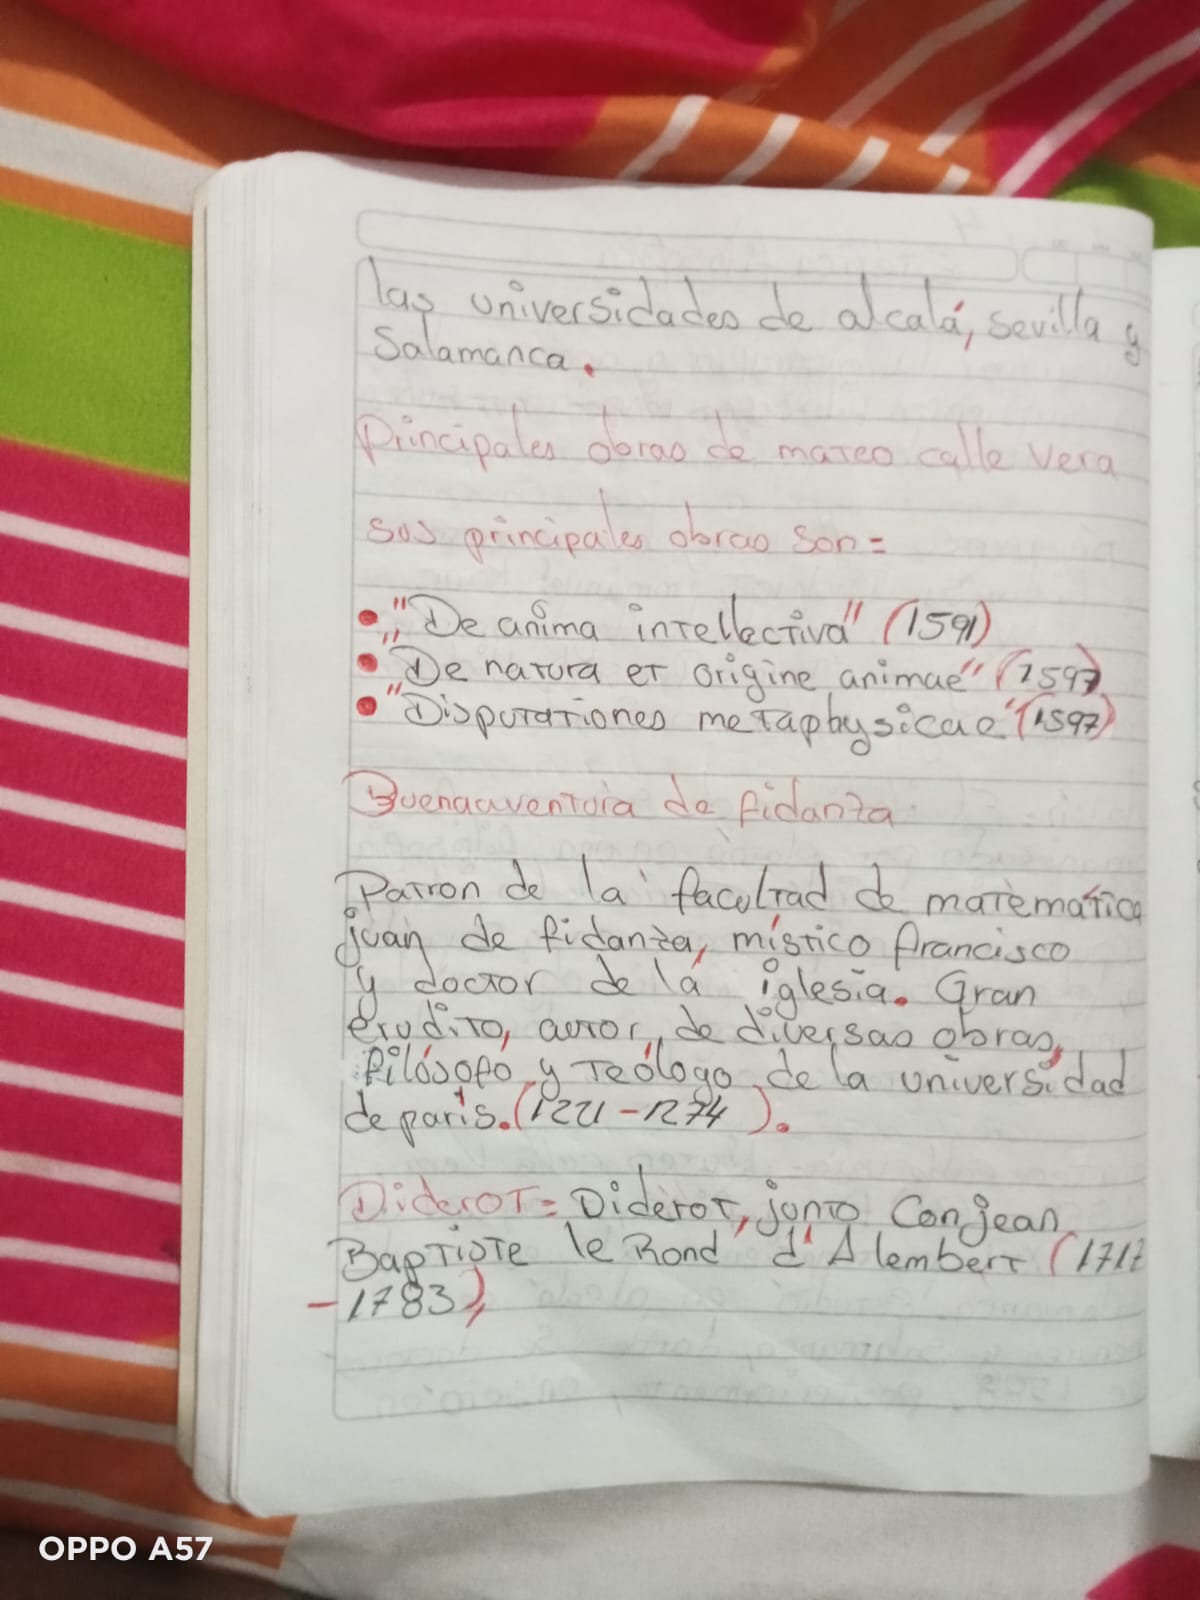 las universidades de alcalá, Sevilla y
Salamanca.
Principales obras de mateo calle Vera
sus principales obras son=
• "De anima intellectiva" (1591)
• "De natura et origine animae" (1597)
• "Disputationes metaphysicae" (1597)
Buenaaventura de fidanza
Patron de la facultad de matemática
juan de fidanza, místico francisco
y doctor de la iglesia. Gran
erudito, autor, de diversas obras,
filósofo y teólogo de la universidad
de paris. (1221-1274).
Diderot= Diderot, junto Con jean
Baptiste le Rond d'Alembert (1717
-1783),
OPPO A57